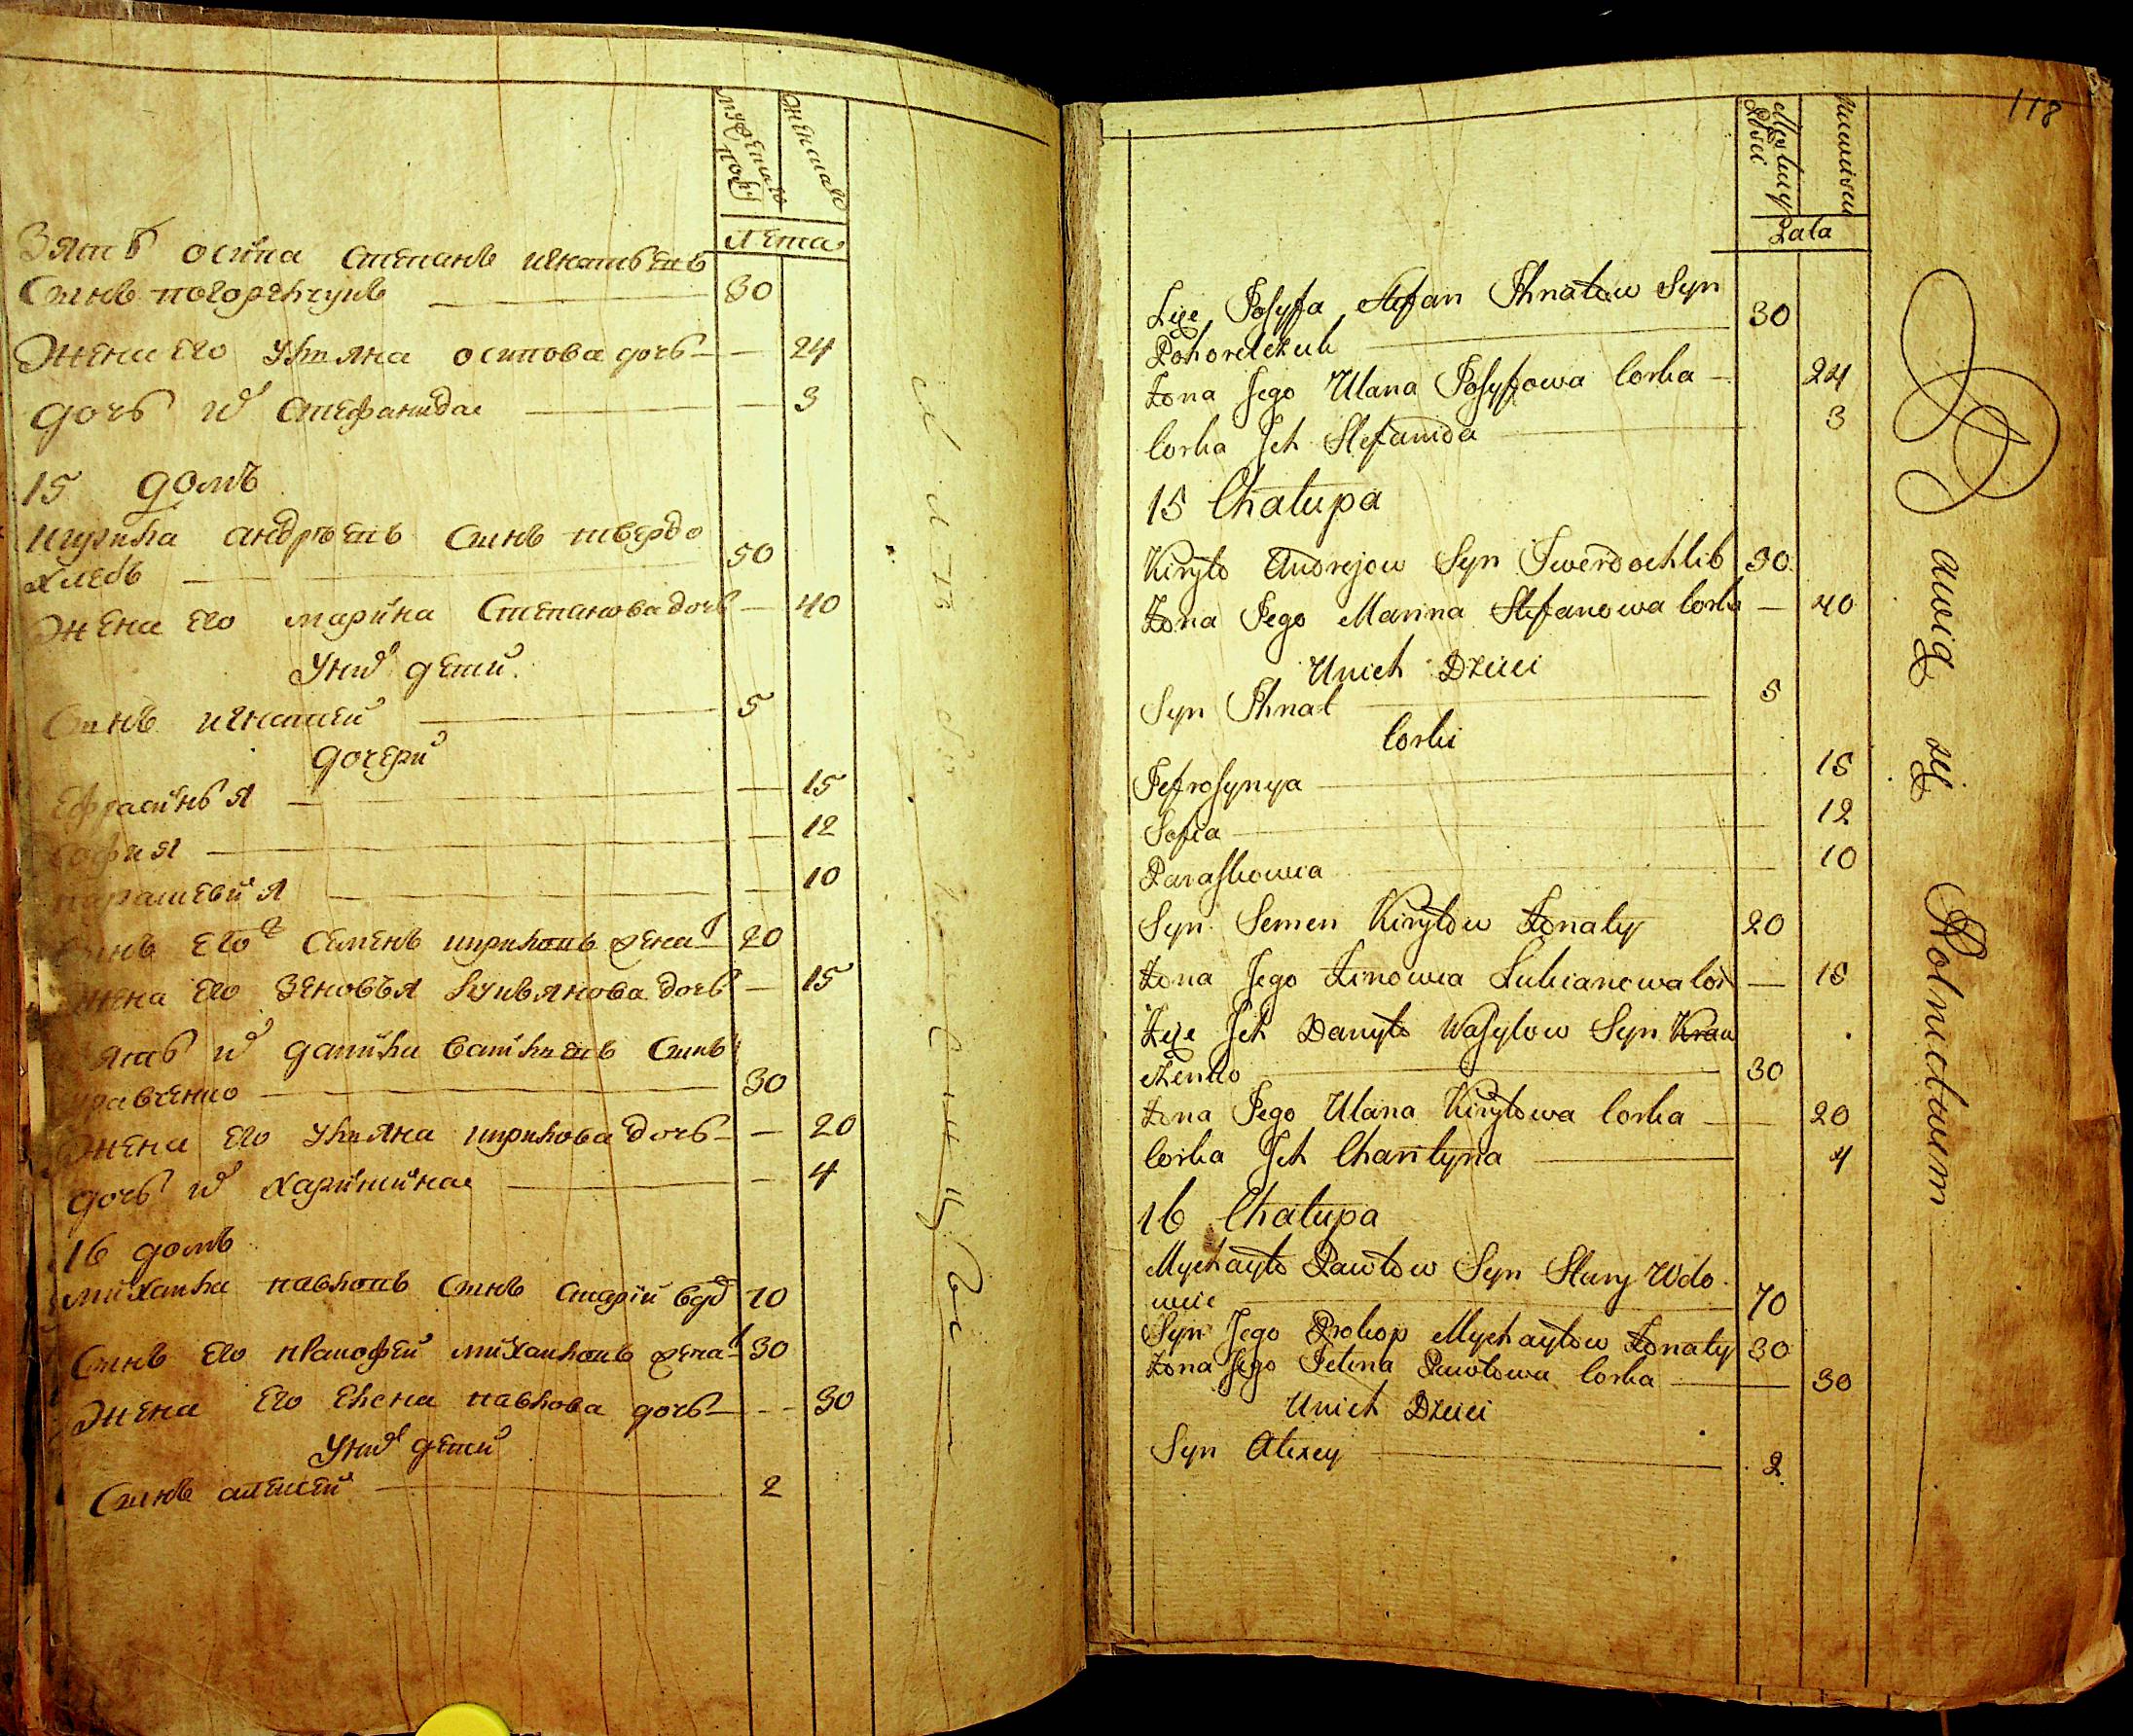 мужеска полу
женска
лета
Зять осипа степанъ игнатьевъ
Сынъ погорелчукъ 30
Жена его ульяна осипова дочь 24
дочь их стефанида 3
15 домъ
кирила андреевъ сынъ твердо
хлебъ 50
Жена его марина степанова дочь 40
У них дети
Сынъ игнатей 5
дочери
ефрасинья 15
софия 12
парасковия 10
Сынъ его семенъ кириловъ женат 20
Жена его зеновья лукьянова дочь 15
Зять их данила василевъ сынъ
кравченко 30
Жена его ульяна кирилова дочь 20
дочь их харитина 4
16 домъ
михаила павловъ сынъ старий вд 70
Сынъ его прокофей михаиловъ женат 30
Жена его елена павлова дочь 30
У них дети
Сынъ алексей 2
118
Męskiey Płci
Niewiesci
Lata
Zięc Josyfa Stefan Ihnatow Syn
Pohorelczuk 30
Zona Jego Ulana Josyfowa Corka 24
Corka Jch Stefanida 3
15 Chalupa
Kiryło Andrejow Syn Twerdochlib 50
Zona Jego Marina Stefanowa Corka 40
Unich Dzieci
Syn Ihnat 5
Corki
Jefrosynya 15
Sofia 12
Paraskowia 10
Syn Semen Kiryłow Żonaty 20
Zona Jego Zinowia Lukianowa Cor 15
Zięc Jch Danyło Wasylow Syn Kraw
czenko 30
Zona Jego Ulana Kiryłowa Corka 20
Corka Jch Charityna 4
16 Chalupa
Mychayło Pawłow Syn Stary Wdo
wiec 70
Syn Jego Prokop Mychayłow Żonaty 30
Zona Jego Jelena Pawłowa Corka 30
Unich Dzieci
Syn Alexey 2
Bawią się Rolnictwem